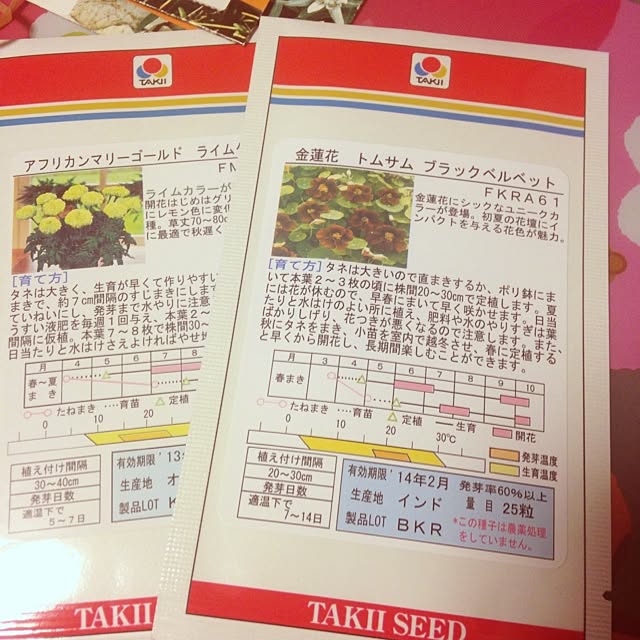 TAKII
アフリカンマリーゴールド ライム
FN
ライムカラーが
開花はじめはグリ
にレモン色に変
種。草丈70〜80c
に最適で秋遅く
[育て方]
タネは大きく、生育が早くて作りやすい
まきで、約7cm間隔のすじまきにします
ていねいにし、発芽まで水やりに注意
うすい液肥を毎週1回与え、本葉2〜
間隔に仮植。本葉7〜8枚で株間30〜
日当たりと水はけさえよければやせ
月 4 5 6 7 8
春〜夏
まき
たねまき 育苗 定植
0 10 20
植え付け間隔
30〜40cm
発芽日数
適温下で
5〜7日
有効期限 '13
生産地 オ
製品LOT K
TAKII
TAKII
金蓮花 トムサム ブラックベルベット
FKRA61
金蓮花にシックなユニークカ
ラーが登場。初夏の花壇にイ
ンパクトを与える花色が魅力。
[育て方]タネは大きいので直まきするか、ポリ鉢にま
いて本葉2〜3枚の頃に株間20〜30cmで定植します。夏
には花が休むので、早春にまいて早く咲かせます。日当
たりと水はけのよい所に植え、肥料や水のやりすぎは葉
ばかりしげり、花つきが悪くなるので注意します。また、
秋にタネをまき、小苗を室内で越冬させ、春に定植する
と早くから開花し、長期間楽しむことができます。
月 3 4 5 6 7 8 9 10
春まき
たねまき 育苗 定植 生育 開花
0 10 20 30℃
発芽温度
生育温度
植え付け間隔
20〜30cm
発芽日数
適温下で
7〜14日
有効期限 '14年2月 発芽率60%以上
生産地 インド 量目 25粒
製品LOT BKR *この種子は農薬処理
をしていません。
TAKII SEED